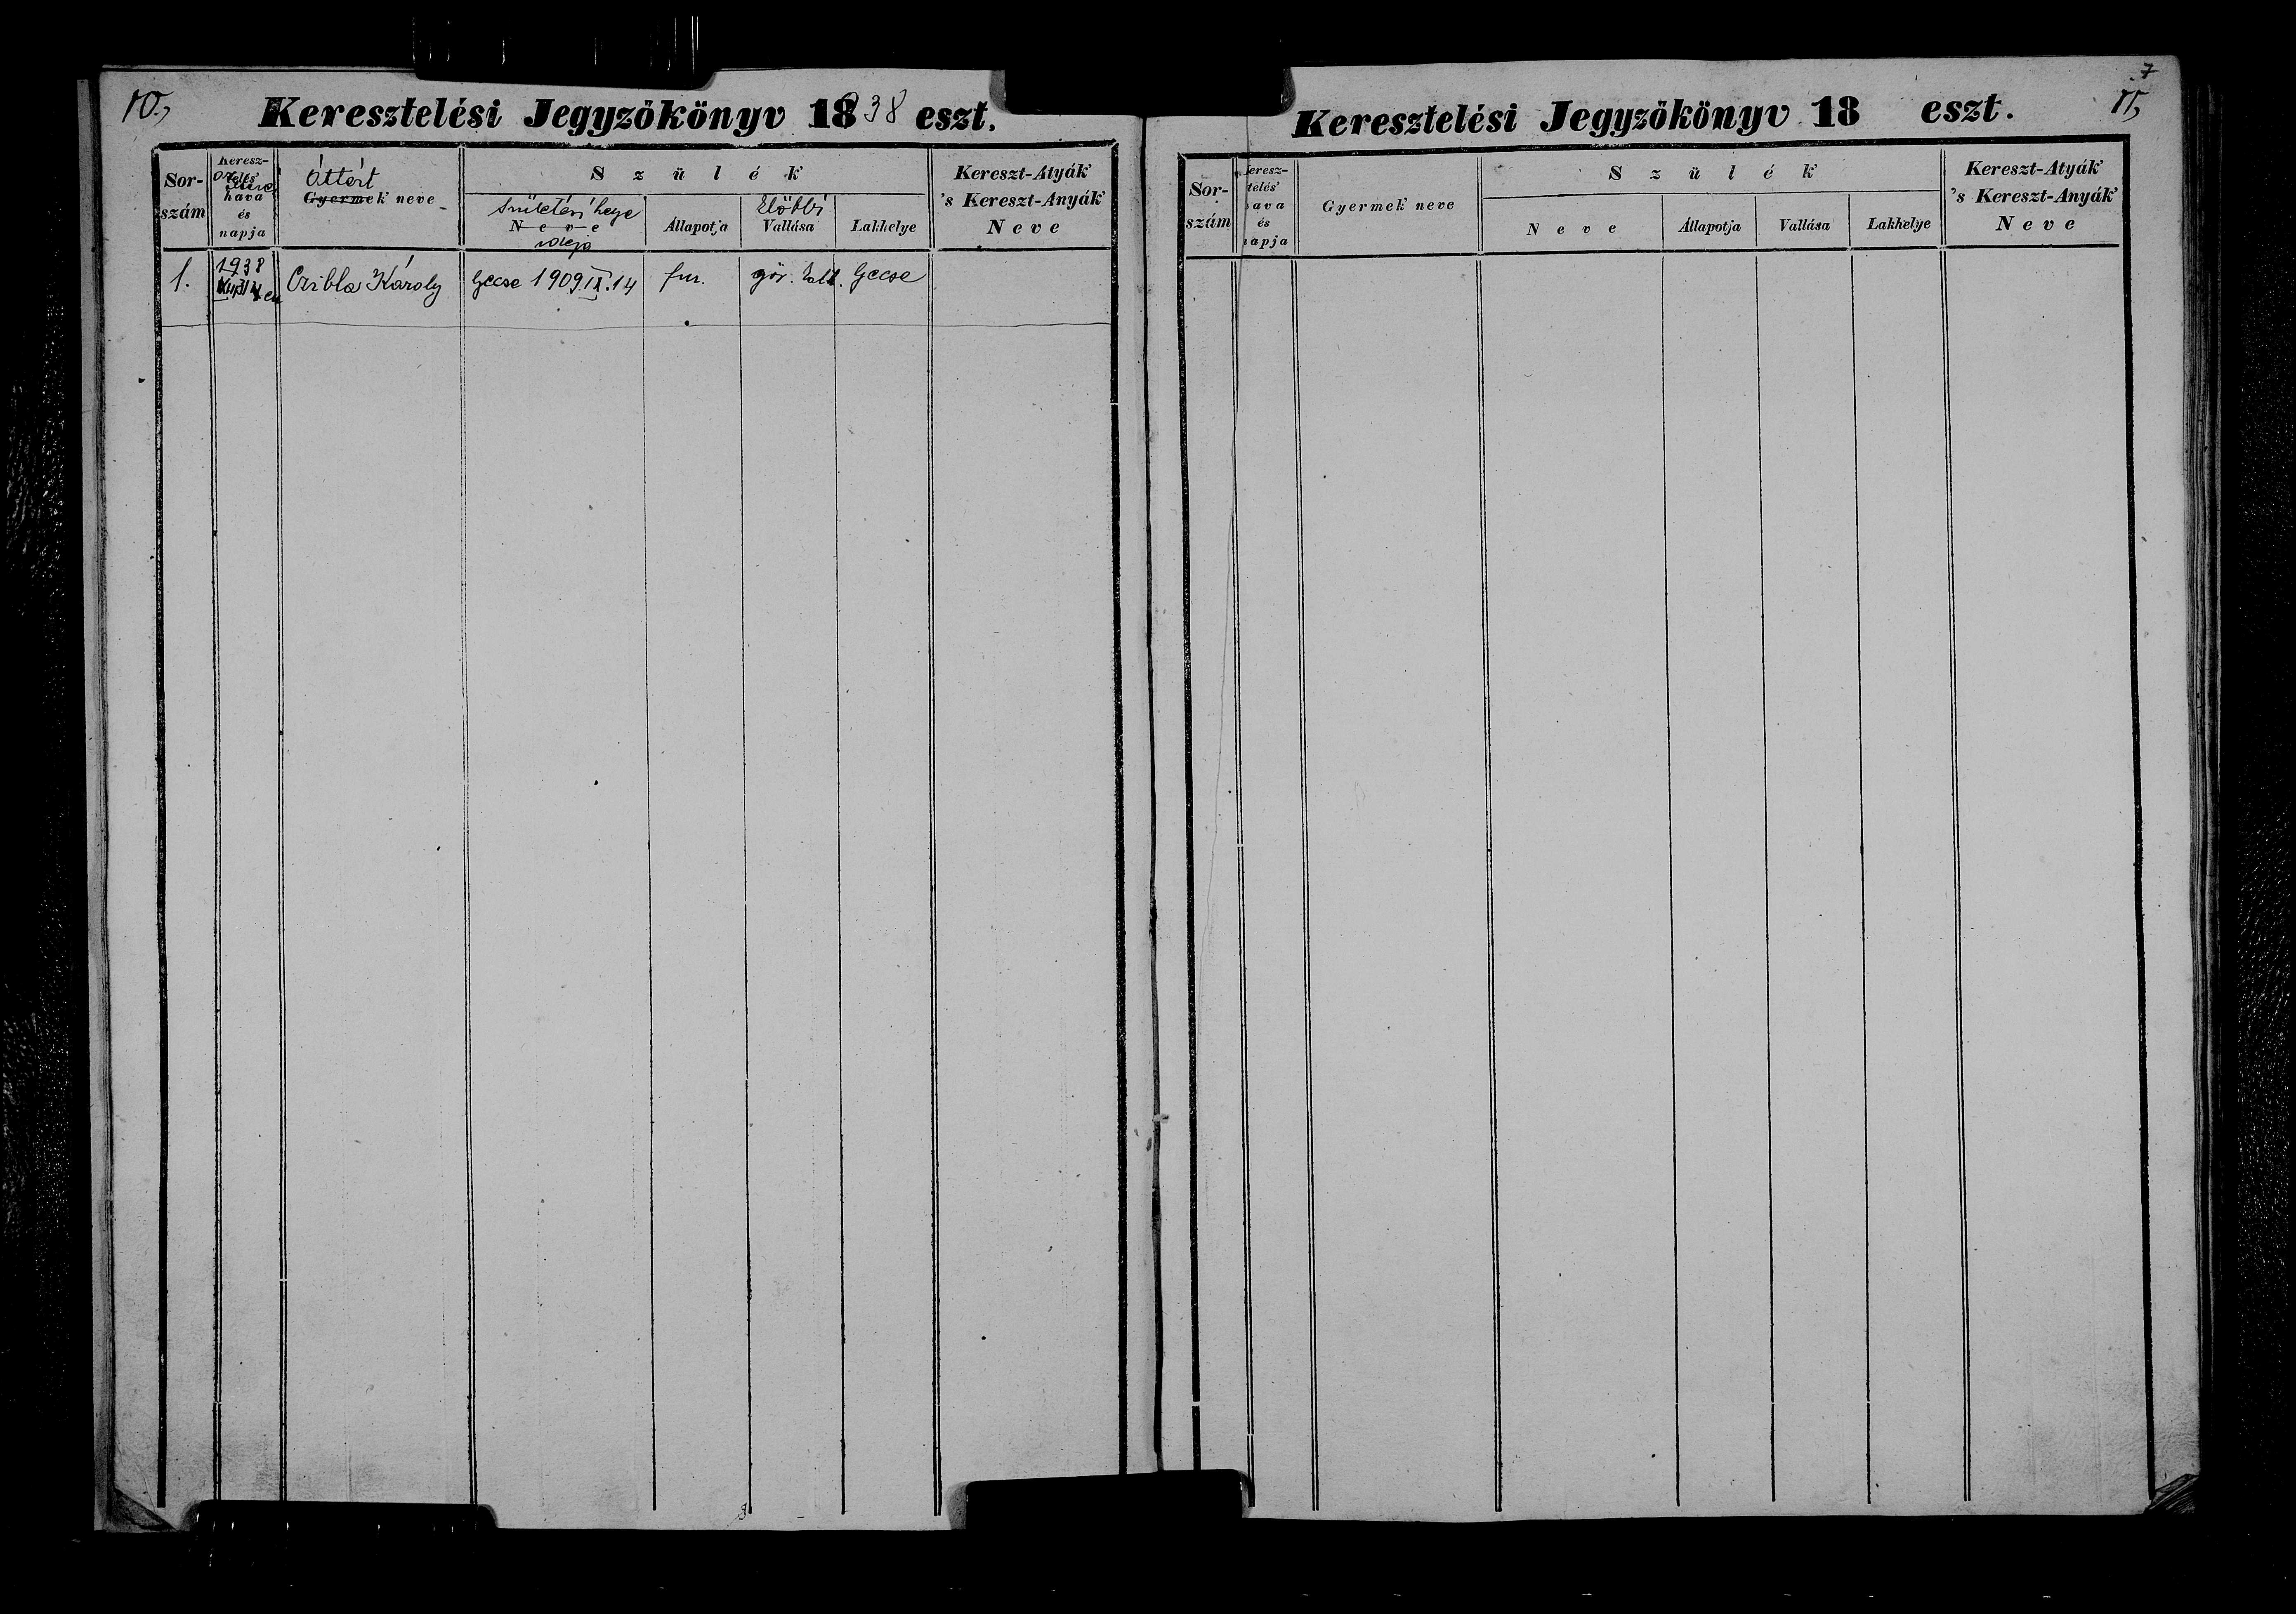 10.,
Keresztelési Jegyzőkönyv 18938 eszt.
Sor-szám
Keresz-telés' hava és napja
Áttért
Gyermek neve
Szülék
születési helye
Neve
ideje
Állapotja
Előbbi
Vallása
Lakhelye
Kereszt-Atyák' 's Kereszt-Anyák' Neve
1. 1938 Czibla Károly Gecse 1909.IX.14 gör. kath. Gecse
7
11,
Keresztelési Jegyzőkönyv 18 eszt.
Sor-szám
eresz-telés' ava és apja
Gyermek neve
Szülék
Neve
Állapotja
Vallása
Lakhelye
Kereszt-Atyák' 's Kereszt-Anyák' Neve